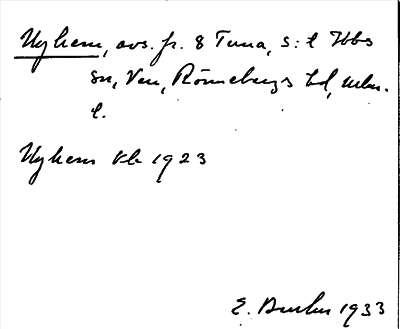 Nyhem, avs. fr. 8 Tuna, S:t Ibbs
sn, Ven, Rönnebergs hd, Mlm.
l.
Nyhem Kb 1923
E. 1933